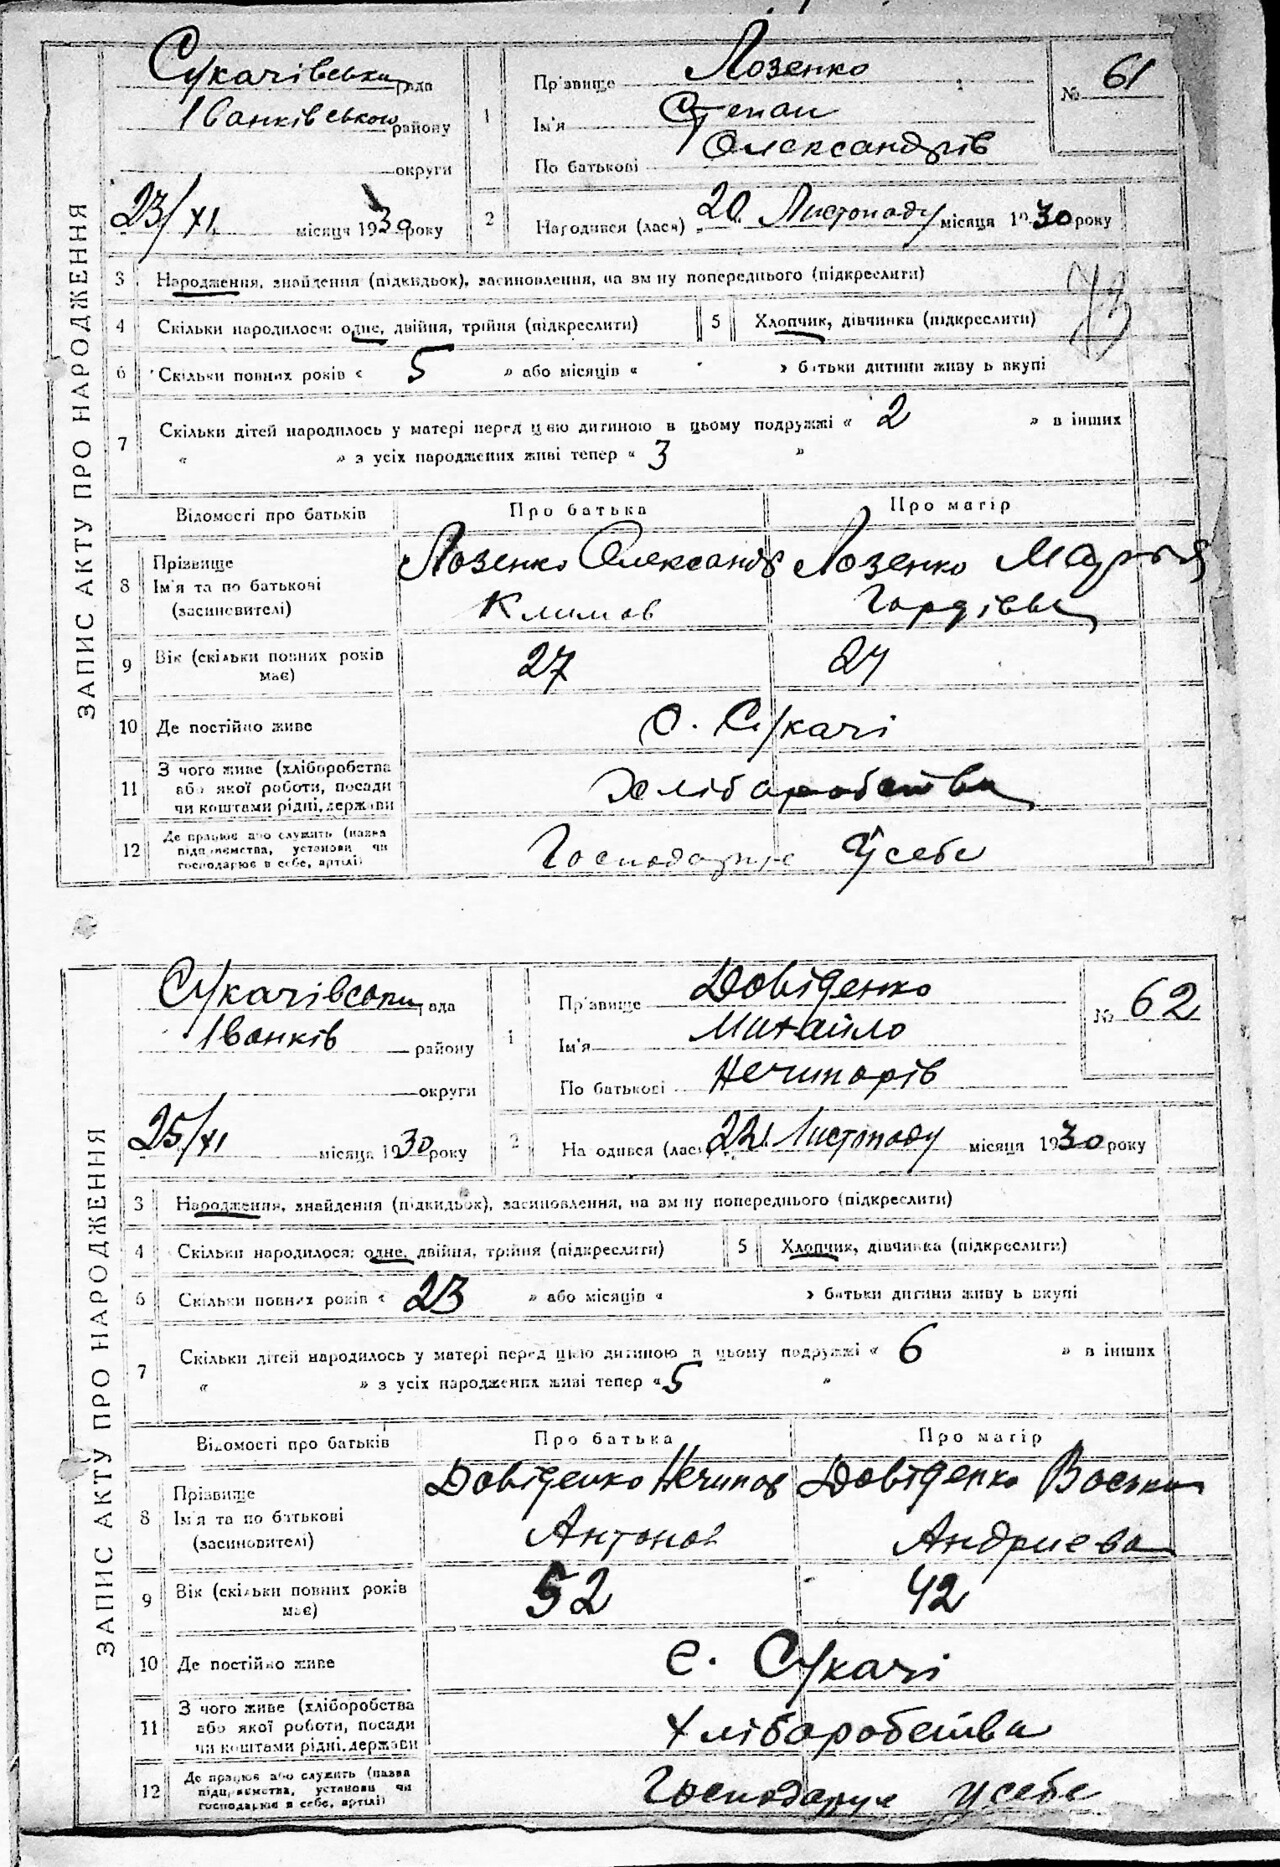 ЗАПИС АКТУ ПРО НАРОДЖЕННЯ
Сукачівська рада
Іванківського району
округи
23/XI місяця 1930 року
1
Прізвище Лозенко
Ім'я Степан
По батькові Олександрів
№ 61
2
Народився (лася) 20 Листопаду місяця 1930 року
3 Народження, знайдення (підкидьок), засиновлення, на зміну попереднього (підкреслити)
4 Скільки народилося: одне, двійня, трійня (підкреслити)
5 Хлопчик, дівчинка (підкреслити)
73
6 Скільки повних років « 5 » або місяців « » батьки дитини живуть вкупі
7 Скільки дітей народилось у матері перед цією дитиною в цьому подружжі « 2 » в інших
« » з усіх народжених живі тепер « 3 »
Відомості про батьків
Про батька
Про матір
8 Прізвище
Ім'я та по батькові
(засиновителі)
Лозенко Олександр
Климов
Лозенко Марья
Гордієва
9 Вік (скільки повних років
має)
27
27
10 Де постійно живе
с. Сукачі
11 З чого живе (хліборобства
або якої роботи, посади
чи коштами рідні, держави
Хліборобства
12 Де працює або служить (назва
підприємства, установи чи
господарює в себе, артілі)
Господарює у себе
ЗАПИС АКТУ ПРО НАРОДЖЕННЯ
Сукачівська рада
Іванків району
округи
25/XI місяця 1930 року
1
Прізвище Довіденко
Ім'я Михайло
По батькові Нечипорів
№ 62
2
Народився (лася) 22 Листопаду місяця 1930 року
3 Народження, знайдення (підкидьок), засиновлення, на зміну попереднього (підкреслити)
4 Скільки народилося: одне, двійня, трійня (підкреслити)
5 Хлопчик, дівчинка (підкреслити)
6 Скільки повних років « 23 » або місяців « » батьки дитини живуть вкупі
7 Скільки дітей народилось у матері перед цією дитиною в цьому подружжі « 6 » в інших
« » з усіх народжених живі тепер « 5 »
Відомості про батьків
Про батька
Про матір
8 Прізвище
Ім'я та по батькові
(засиновителі)
Довіденко Нечипор
Антонов
Довіденко
Андриева
9 Вік (скільки повних років
має)
52
42
10 Де постійно живе
с. Сукачі
11 З чого живе (хліборобства
або якої роботи, посади
чи коштами рідні, держави
Хліборобства
12 Де працює або служить (назва
підприємства, установи чи
господарює в себе, артілі)
Господарує у себе